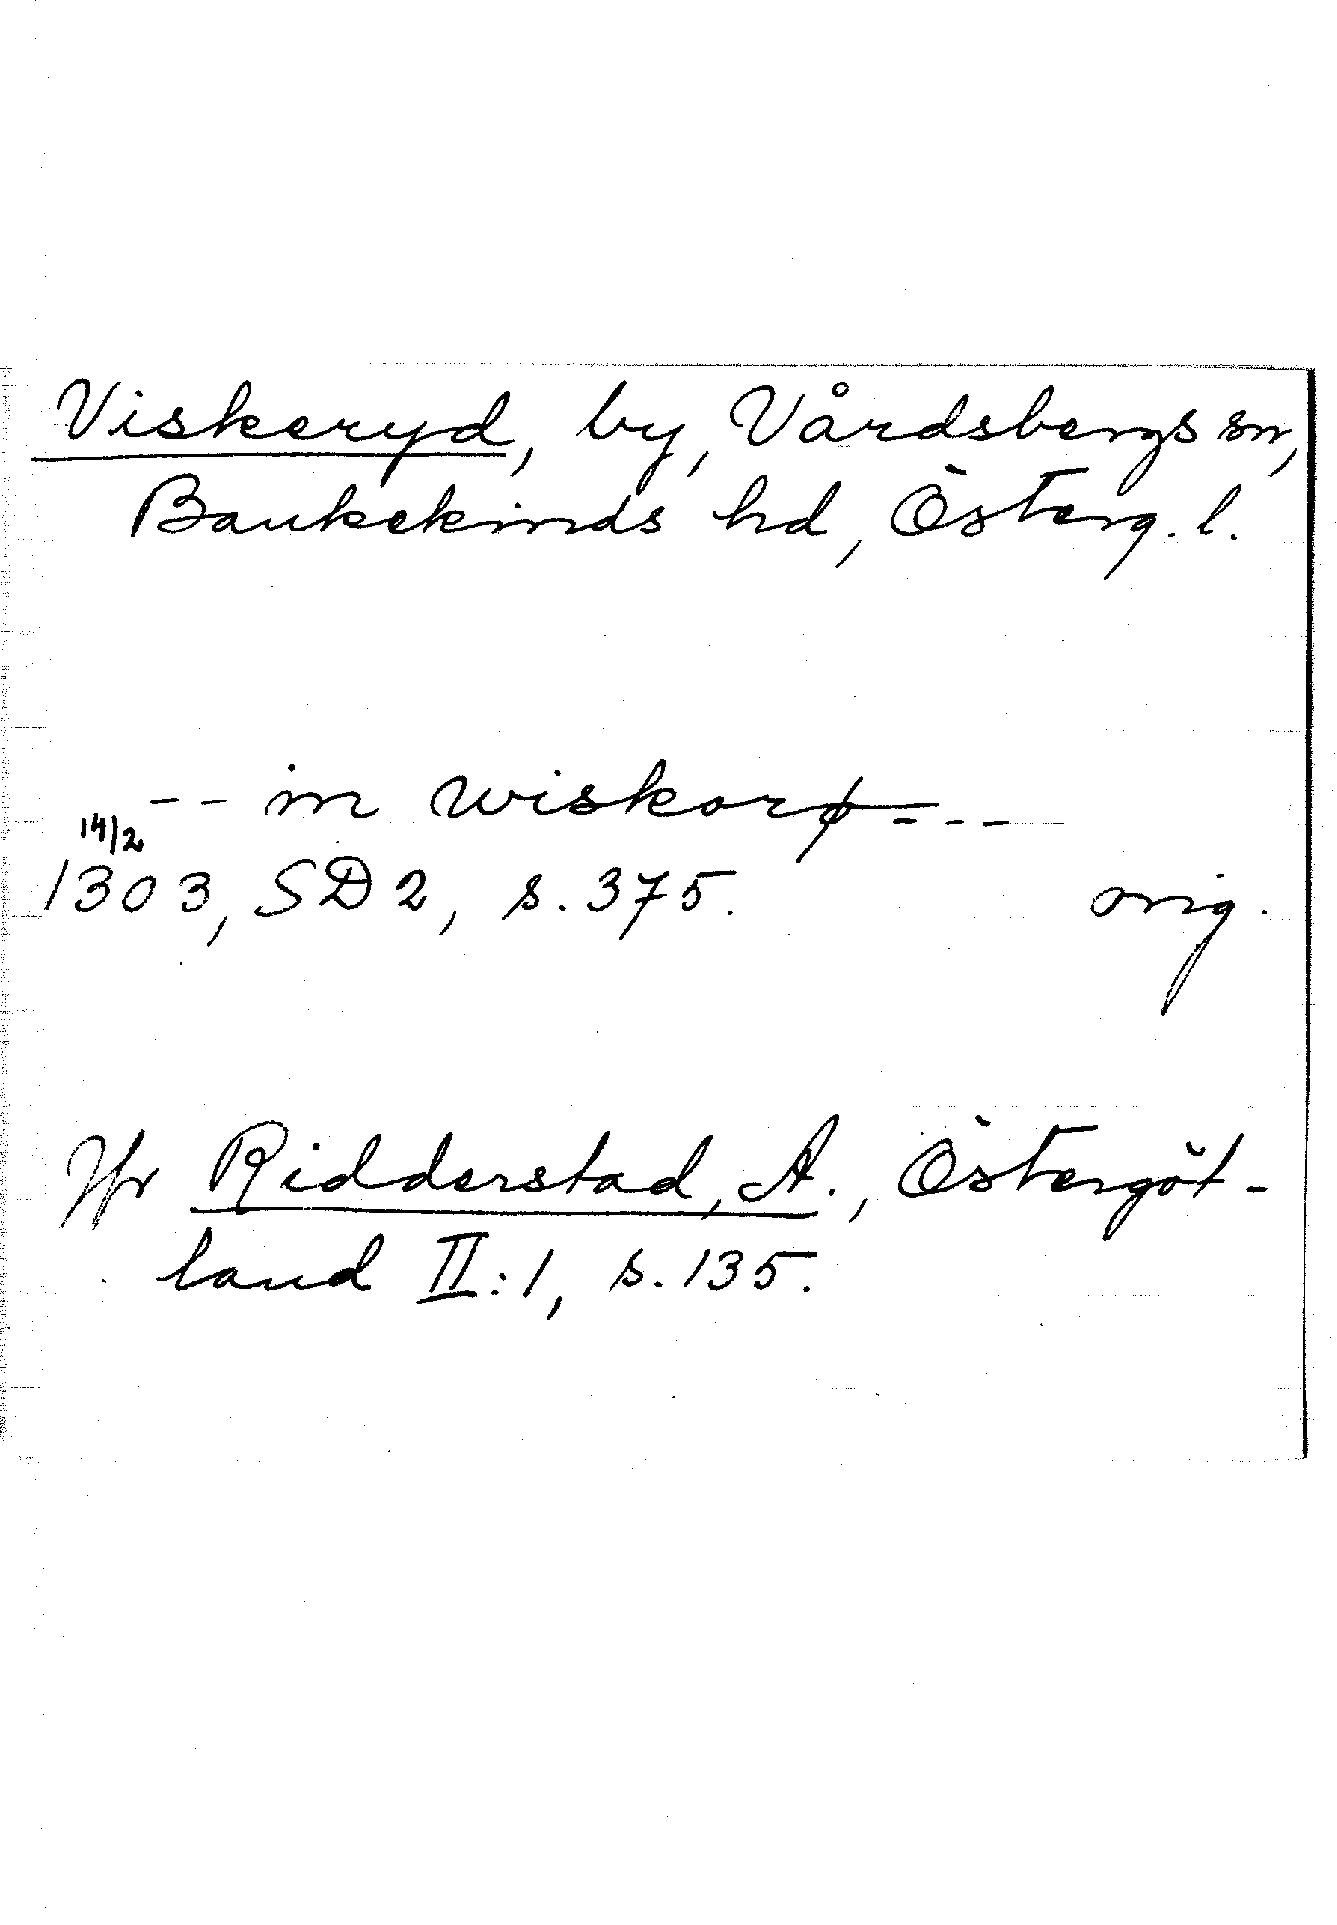 Viskeryd, by, Vårdsbergs sn,
Bankekinds hd, Österg. l.
-- in wiskorþ ---
14/2
1303, SD 2, s. 375. orig.
Jfr Ridderstad, A., Östergöt-
land II:1, s. 135.